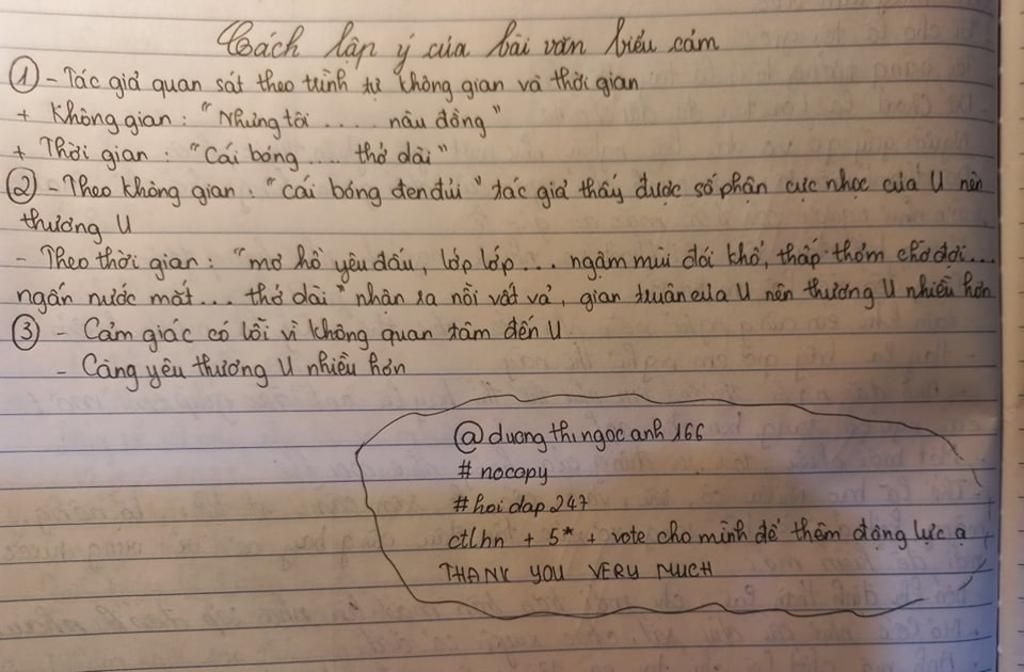 Cách lập ý của bài văn biểu cảm
① - Tác giả quan sát theo trình tự không gian và thời gian
+ Không gian : "Nhưng tôi .... nâu đồng"
+ Thời gian : "Cái bóng .... thở dài"
② - Theo không gian : "cái bóng đen đủi" tác giả thấy được số phận cực nhọc của U nên
thương U
- Theo thời gian : "mơ hồ yêu dấu, lớp lớp ... ngậm mùi đói khổ, thấp thỏm chờ đợi...
ngấn nước mắt ... thở dài" nhận ra nỗi vất vả, gian truân của U nên thương U nhiều hơn
③ - Cảm giác có lỗi vì không quan tâm đến U
- Càng yêu thương U nhiều hơn
@duongthingocanh166
#nocopy
#hoidap247
ctlhn + 5* + vote cho mình để thêm động lực ạ
THANK YOU VERY MUCH